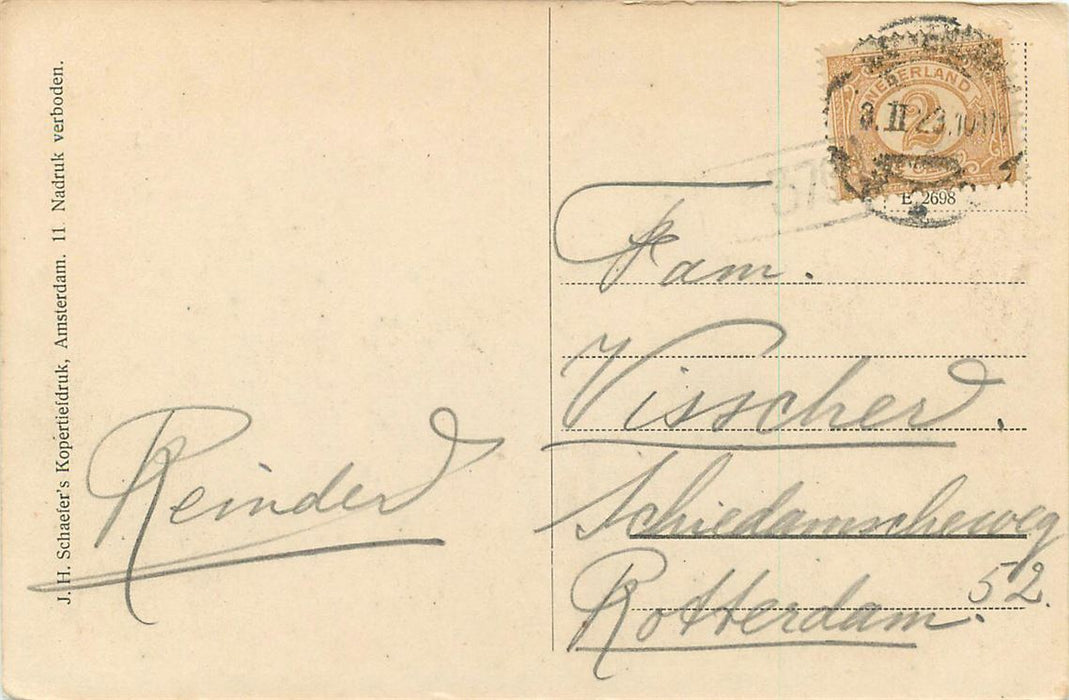 J. H. Schaefer's Kopértiefdruk, Amsterdam. 11 Nadruk verboden.
Reinder
NEDERLAND
2
E 2698
Fam.
Visscher.
Schiedamscheweg
52.
Rotterdam.